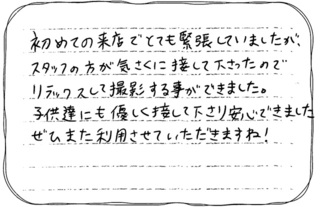 初めての来店でとても緊張していましたが、
スタッフの方が気さくに接して下さったので
リラックスして撮影する事ができました。
子供達にも優しく接して下さり安心できました
ぜひまた利用させていただきますね!